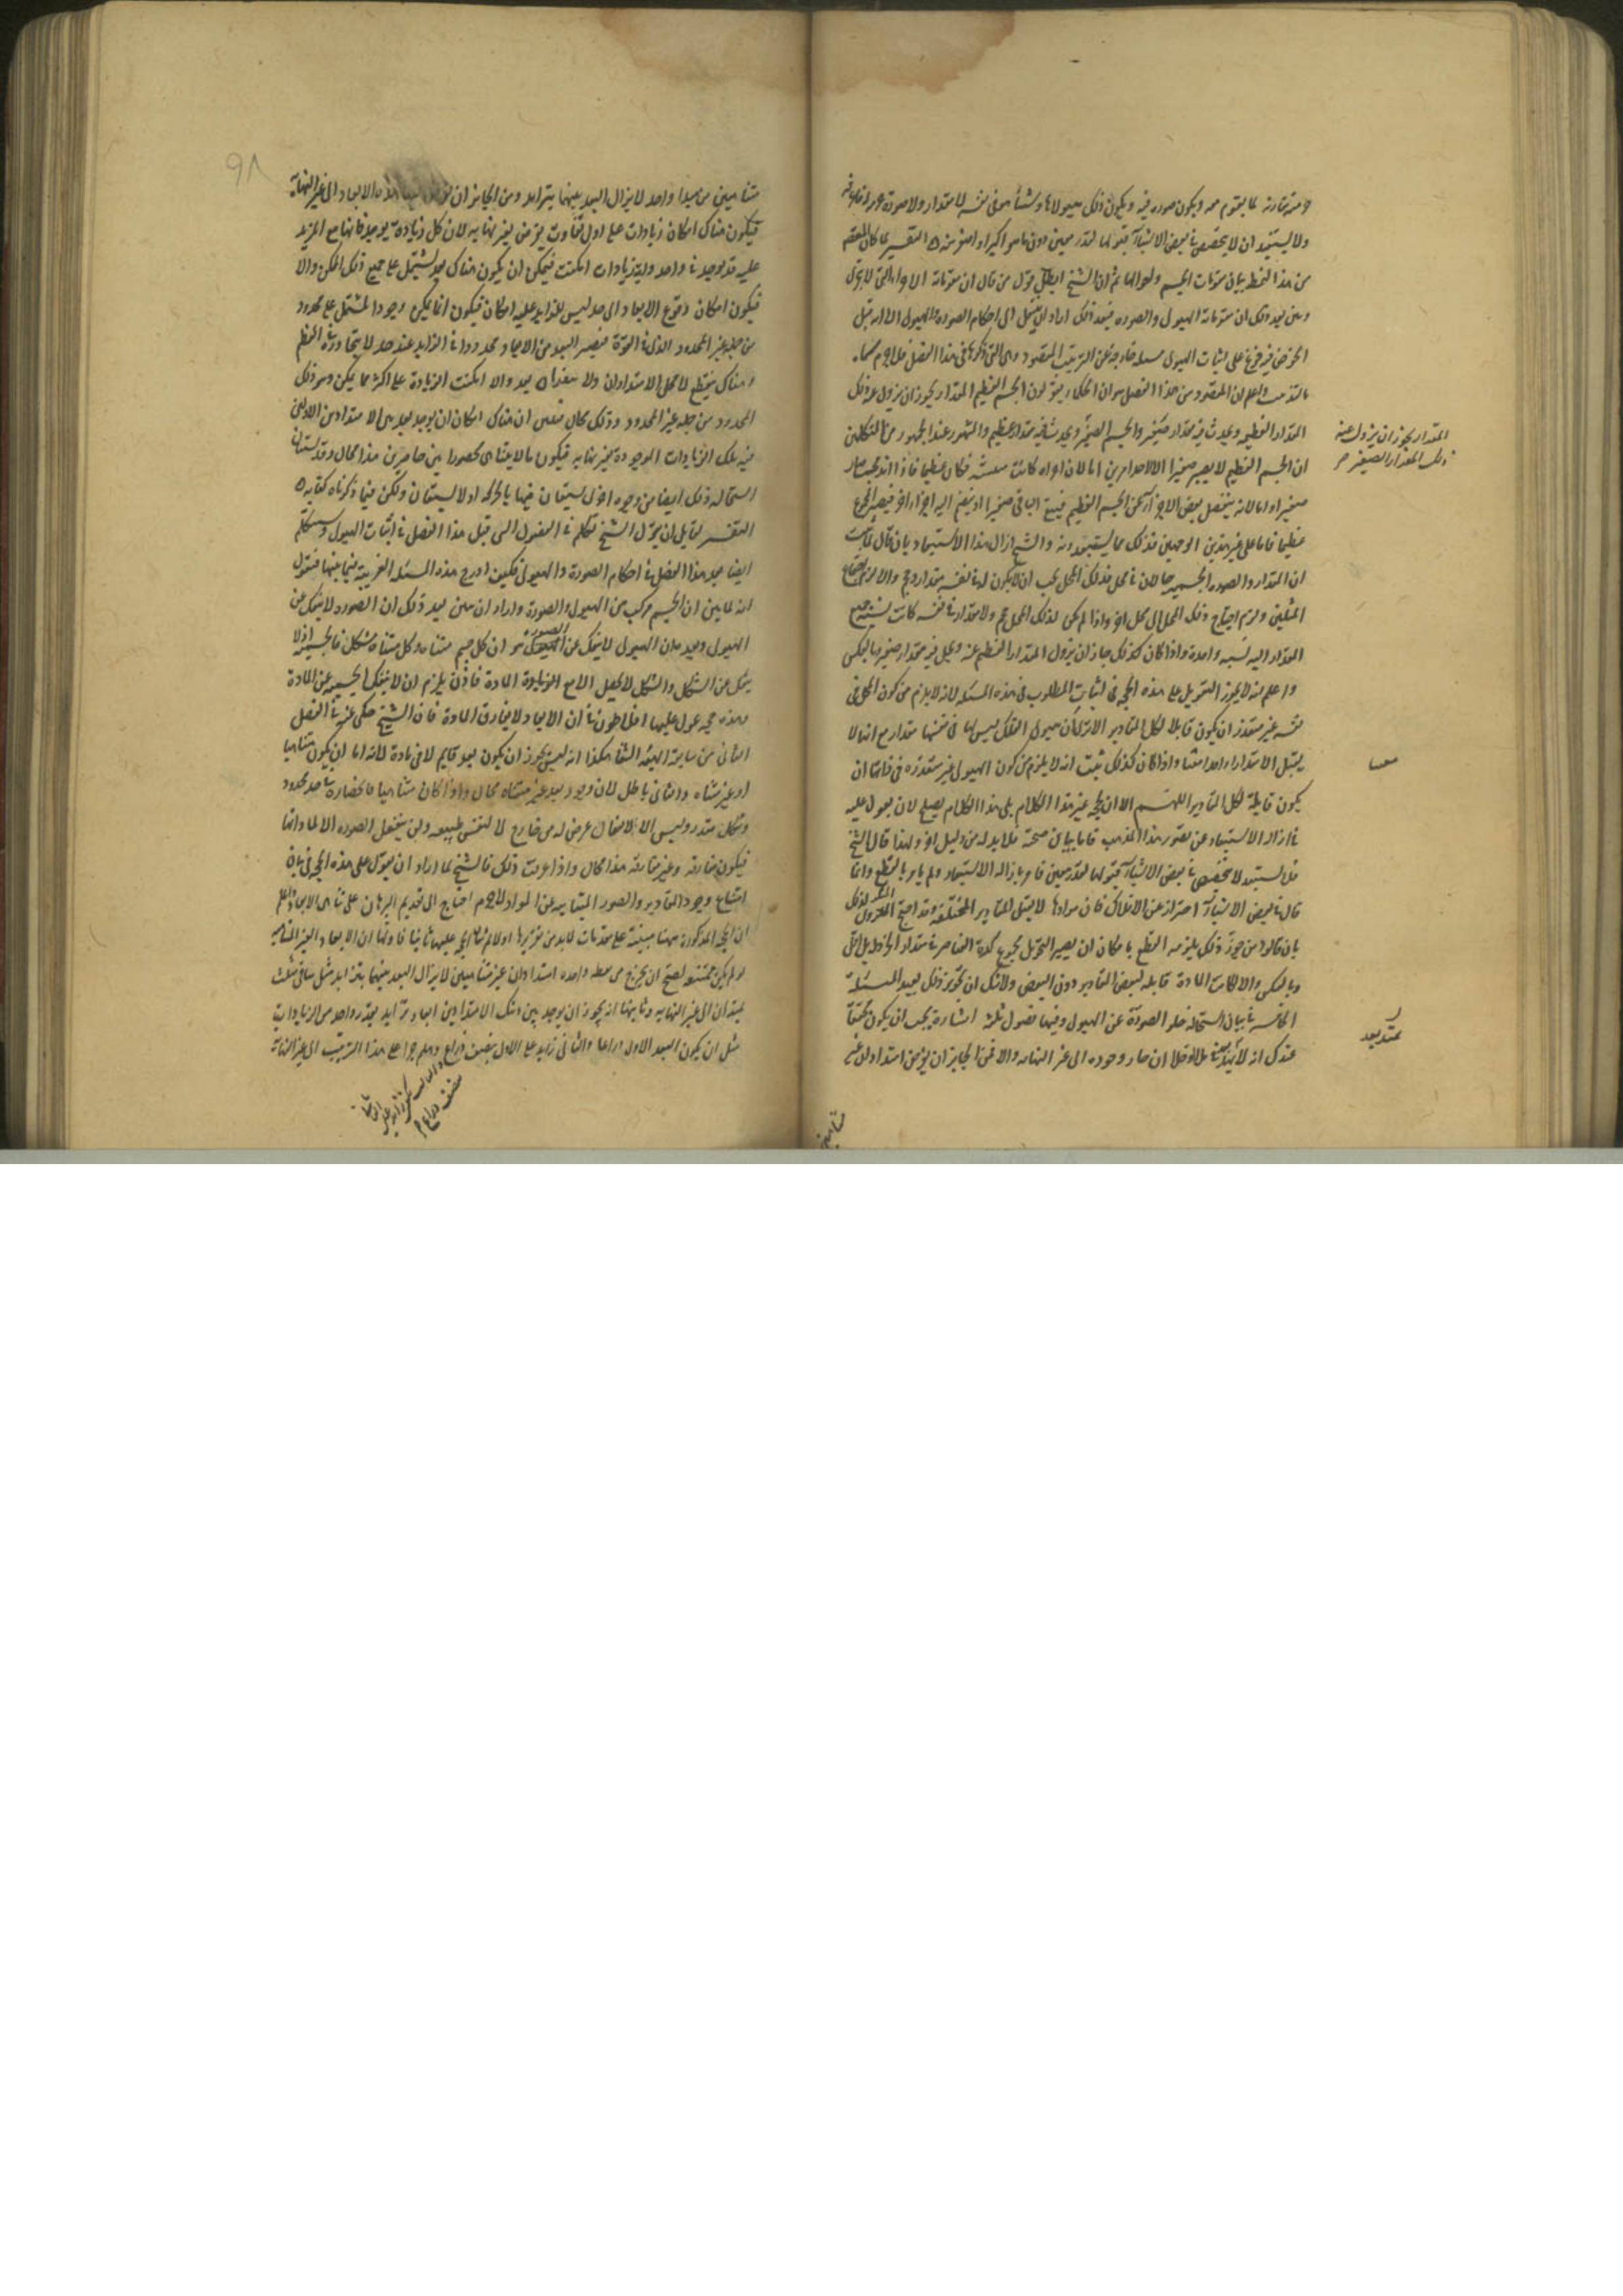 ولا يستبعد ان لا يتخصص في بعض الاشياء قبولها لقدر معين دون ما هو اكبر او اصغر منه التفسير لما كان المقصد
من هذا النمط بيان مقومات الجسم ولواحقها ثم ان الشيخ ابطل قول من قال ان مقوماته الاجزاء التي لا تتجزى
وبين بعد ذلك ان مقوماته الهيولى والصورة فبعد ذلك اراد ان ينتقل الى احكام الصورة والهيولى الا انه قبل
الخوض فيه فرع على اثبات الهيولى مسئلة خارجة عن الترتيب المقصود وهى التى ذكرها فى هذا الفصل فلاجرم سماه
بالتذنيب واعلم ان المقصود من هذا الفصل هو ان الحكماء يقولون الجسم العظيم المقدار يجوز ان يزول عنه ذلك
المقدار العظيم ويحدث فيه مقدار صغير والجسم الصغير ويحدث فيه مقدار عظيم والمشهور عند الجمهور من المتكلمين
المقدار يجوز ان يزول عنه
ذلك المقدار الصغير صح
ان الجسم العظيم لا يصير صغيرا الا لاحد امرين اما لان اجزاءه كانت منتفشة فكان عظيما فاذا اندمجت صار
صغيرا واما لانه ينفصل بعض الاجزاء عن الجسم العظيم فيبقى الباقى صغيرا او ينضم اليه اجزاء اخر فيصير المجموع
عظيما فاما على غير هذين الوجهين فذلك مما يستبعدونه والشيخ ازال هذا الاستبعاد بان قال لما ثبت
ان المقدار والصورة الجسمية حالان فى محل فذلك المحل يجب ان لا يكون له فى نفسه مقدار وحجم والا لزم اجتماع
المثلين ولزم احتياج ذلك المحل الى محل اخر واذا لم يكن لذلك المحل حجم ولا مقدار فى نفسه كانت نسبة جميع
المقدار اليه نسبة واحدة واذا كان كذلك جاز ان يزول المقدار العظيم عنه ويحل فيه مقدار صغير وبالعكس
واعلم انه لا يجوز التعويل على هذه الحجة فى اثبات المطلوب فى هذه المسئلة لانه لا يلزم من كون المحل فى
نفسه غير متقدر ان يكون قابلا لكل المقادير الا ترى ان هيولى الفلك ليس لها فى نفسها مقدار مع انها لا
يقبل الا مقدارا واحدا معينا واذا كان كذلك ثبت انه لا يلزم من كون الهيولى غير متقدرة فى ذاتها ان
يكون قابلة لكل المقادير اللهم الا ان يحتج بغير هذا الكلام بلى هذا الكلام يصلح لان يعول عليه
فى ازالة الاستبعاد عن تصور هذا المذهب فاما بيان صحته فلا بد له من دليل اخر ولهذا قال الشيخ
فلا يستبعد ان لا يتخصص فى بعض الاشياء قبولها لقدر معين فامر بازالة الاستبعاد ولم يامر بالقطع وانما
قال فى بعض الاشياء احترازا عن الافلاك فان موادها لا يقبل المقادير المختلفة وقد احتج المنكرون لذلك
بان قالوا من جوز ذلك يلزمه القطع بامكان ان يصير
وبالعكس والا لكانت المادة قابلة لبعض المقادير دون البعض ولا شك ان تجويز ذلك بعيد المسئلة
الخامسة فى بيان استحالة خلو الصورة عن الهيولى وفيها فصول ثلثة اشارة يجب ان يكون محققا
عندك انه لا يمتد بعد فى ملا او خلا ان جاز وجوده الى غير النهاية والا فمن الجايز ان يفرض امتدادان غير
يمتد بعد
متناهيين
٩٨
متناهيين من مبدا واحد لا يزال البعد بينهما يتزايد ومن الجايز ان الابعاد الى غير النهاية
فيكون هناك امكان زيادات على اول تفاوت يفرض بغير نهاية لان كل زيادة توجد فانها مع المزيد
عليه قد توجد فى واحد واية زيادات امكنت فيمكن ان يكون هناك بعد يشتمل على جميع ذلك الممكن والا
فيكون امكان وقوع الابعاد الى حد ليس للزايد عليه امكان فيكون انما يمكن وجود المشتمل على محدود
من جملة غير المحدود الذى فى القوة فيصير البعد من الابعاد محدودا فى التزايد عند حد لا يتجاوزه فى العظم
وهناك ينقطع لا محالة الامتدادان ولا ينفذان بعد والا امكنت الزيادة على اكثر ما يمكن وهو ذلك
المحدود من جملة غير المحدود وذلك محال فتبين ان هناك امكان ان يوجد بعد بين الامتدادين الاولين
فيه تلك الزيادات الموجودة بغير نهاية فيكون ما لا يتناهى محصورا بين حاصرين هذا محال وقد يستبان
استحالة ذلك ايضا من وجوه اخرى يستعان فيها بالحركة او لا يستعان ولكن فيما ذكرناه كفاية
التفسير لقايل ان يقول الشيخ تكلم فى الفصول التى قبل هذا الفصل فى اثبات الهيولى وسيتكلم
ايضا بعد هذا الفصل فى احكام الصورة والهيولى فكيف ادرج هذه المسئلة الغريبة فيما بينهما فنقول
انه لما بين ان الجسم مركب من الهيولى والصورة واراد ان يبين بعد ذلك ان الصورة لا ينفك عن
الهيولى وبعده ان الهيولى لا ينفك عن الصورة هو ان كل جسم متناه وكل متناه مشكل فالجسمية اذ لا
ينفك عن الشكل والشكل لا يحصل الا مع المادة فاذن يلزم ان لا ينفك الجسمية عن المادة
وهذه حجة عول عليها افلاطون فى ان الابعاد لا يفارق المادة فان الشيخ حكى عنه فى الفصل
الثانى من سابعة الهيئة الشفا هكذا انه ليس يجوز ان يكون بعد قايم لا فى مادة لانه اما ان يكون متناهيا
او غير متناه والثانى باطل لان وجود بعد غير متناه محال واذا كان متناهيا فانحصاره فى حد محدود
وشكل مقدر وليس الا لانفعال عرض له من خارج لا لنفس طبيعته ولن ينفعل الصورة الا لمادتها
فيكون مفارقة وغير مفارقة هذا محال واذا عرفت ذلك فالشيخ لما اراد ان يعول على هذه الحجة فى بيان
امتناع وجود المقادير والصور الجسمانية عن المواد لاجرم احتاج الى تقديم البرهان على تناهى الابعاد واعلم
ان الحجة المذكورة ههنا مبنية على مقدمات لا بد من تقريرها اولا ثم نبنى الحجة عليها ثانيا فاولها ان الابعاد الغير المتناهية
لو لم يكن ممتنعة لصح ان يخرج من نقطة واحدة امتدادان غير متناهيين لا يزال البعد بينهما يتزايد مثل ساقى مثلث
يمتدان الى غير النهاية وثانيها انه يجوز ان يوجد بين ذينك الامتدادين ابعاد تتزايد بقدر واحد من الزيادات
مثل ان يكون البعد الاول ذراعا والثانى زايد على الاول بنصف ذراع وهلم جرا على هذا الترتيب الى غير النهاية
والثالث يكون زايد على الثانى
بنصف ذراع